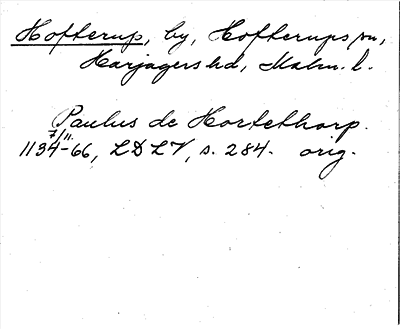 Hofterup, by, Hofterups sn,
Harjagers hd, Malm. l.
Paulus de Hortethorp.
7/11
1134-66, LDLV, s. 284. orig.